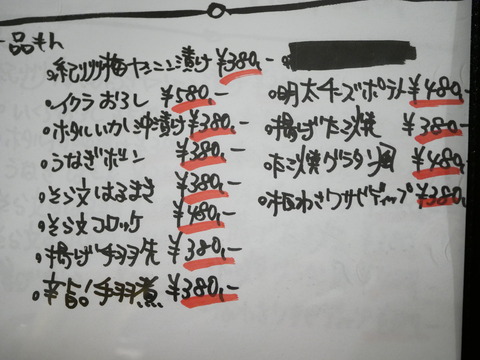 一品もん
・紀州梅ヤンニン漬け ¥380,-
・イクラおろし ¥580,-
・ホタルいか沖漬け ¥380,-
・うなぎボーン ¥380,-
・そら文はるまき ¥380,-
・そら文コロッケ ¥480,-
・揚げ手羽先 ¥380,-
・辛旨!手羽煮 ¥380,-
・明太チーズポテト ¥480,-
・揚げたこ焼 ¥380,-
・たこ焼グラタン風 ¥480,-
・板わさワサビディップ ¥380,-